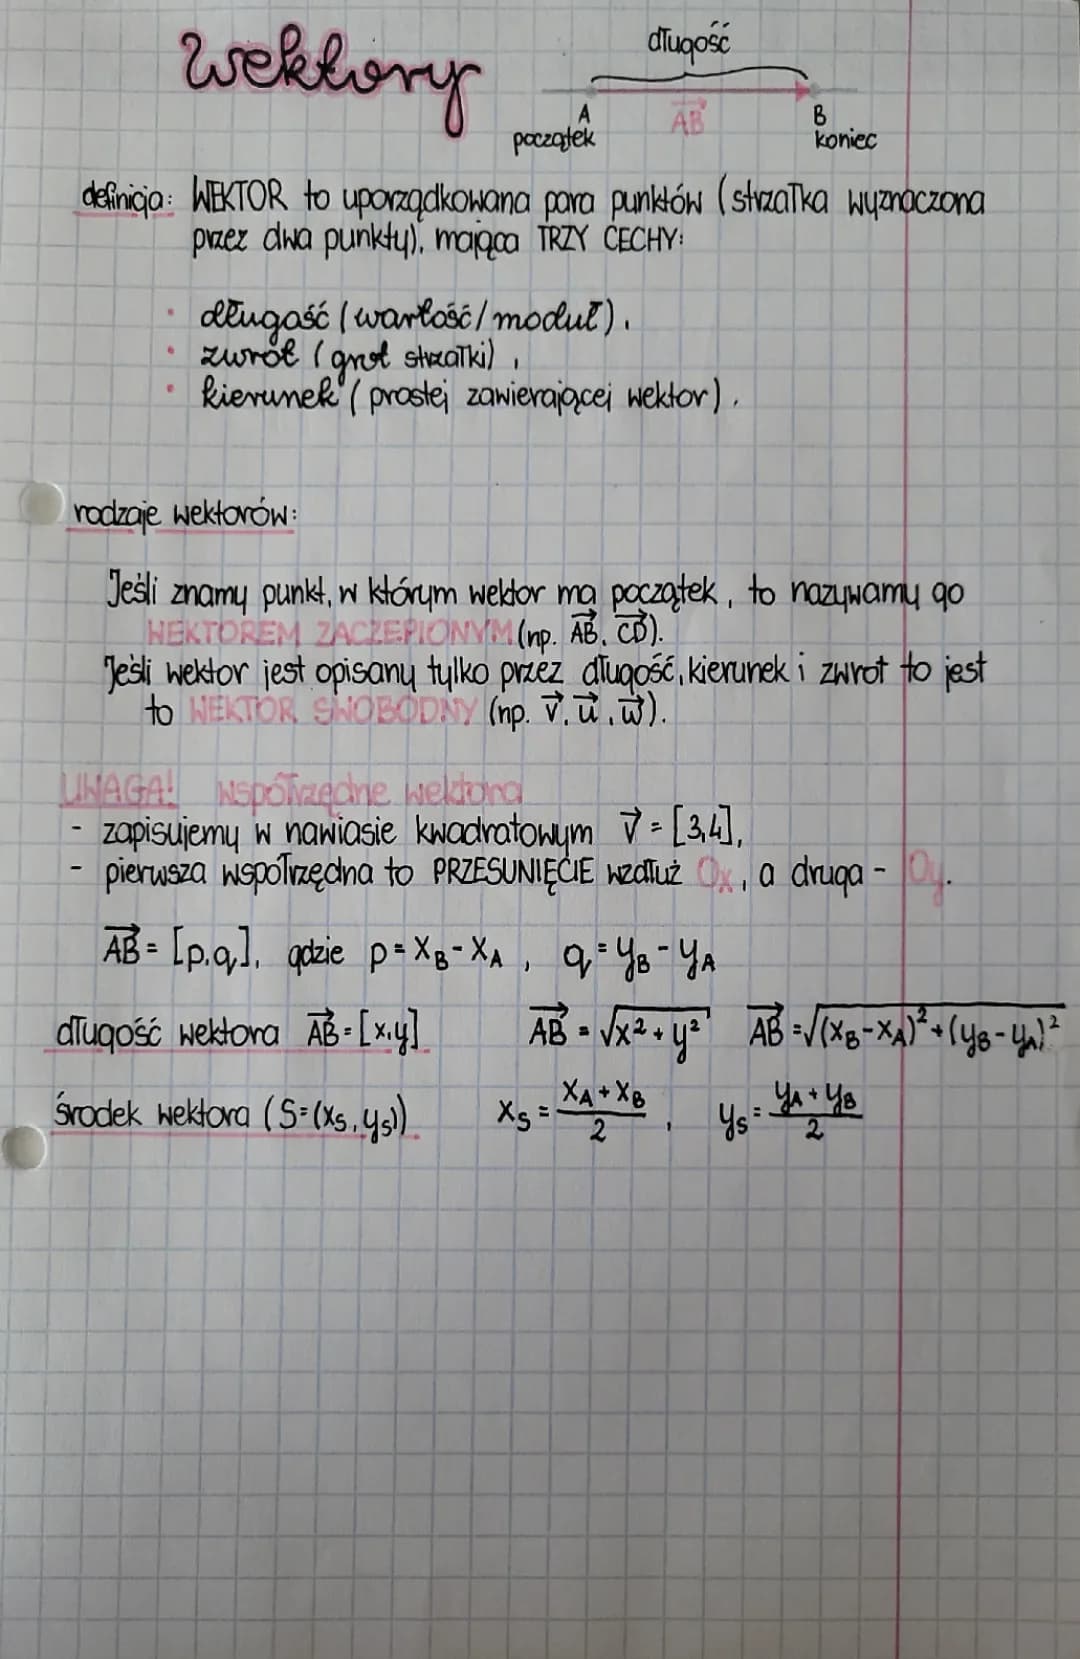 wektory
długość
A
AB
B
początek
koniec
definicja: WEKTOR to uporządkowana para punktów (strzałka wyznaczona
przez dwa punkty), mająca TRZY CECHY:
• długość (wartość/moduł),
• zwrot (grot strzałki),
• kierunek (prostej zawierającej wektor).
rodzaje wektorów:
Jeśli znamy punkt, w którym wektor ma początek, to nazywamy go
WEKTOREM ZACZEPIONYM (np. \vec{AB}, \vec{CD}).
Jeśli wektor jest opisany tylko przez długość, kierunek i zwrot to jest
to WEKTOR SWOBODNY (np. \vec{v}, \vec{u}, \vec{w}).
UWAGA! współrzędne wektora
- zapisujemy w nawiasie kwadratowym \vec{v} = [3,4],
- pierwsza współrzędna to PRZESUNIĘCIE wzdłuż Ox, a druga - Oy.
\vec{AB} = [p,q], gdzie p = x_B - x_A, q = y_B - y_A
długość wektora \vec{AB} = [x,y] \vec{AB} = √(x² + y²) \vec{AB} = √((x_B - x_A)² + (y_B - y_A)²)
środek wektora (S=(x_S, y_S)) x_S = (x_A + x_B)/2, y_S = (y_A + y_B)/2